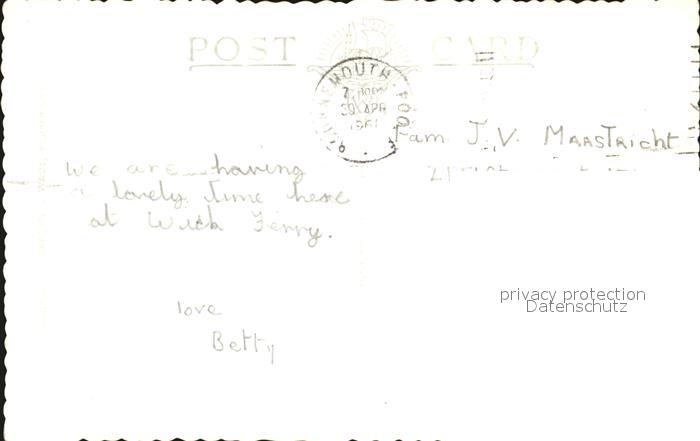 POST CARD
BOURNEMOUTH-POO
30 APR
1961
Fam J.V. MAASTRICHT
We are having
a lovely time here
at Wick Ferry.
love
Betty
privacy protection
Datenschutz